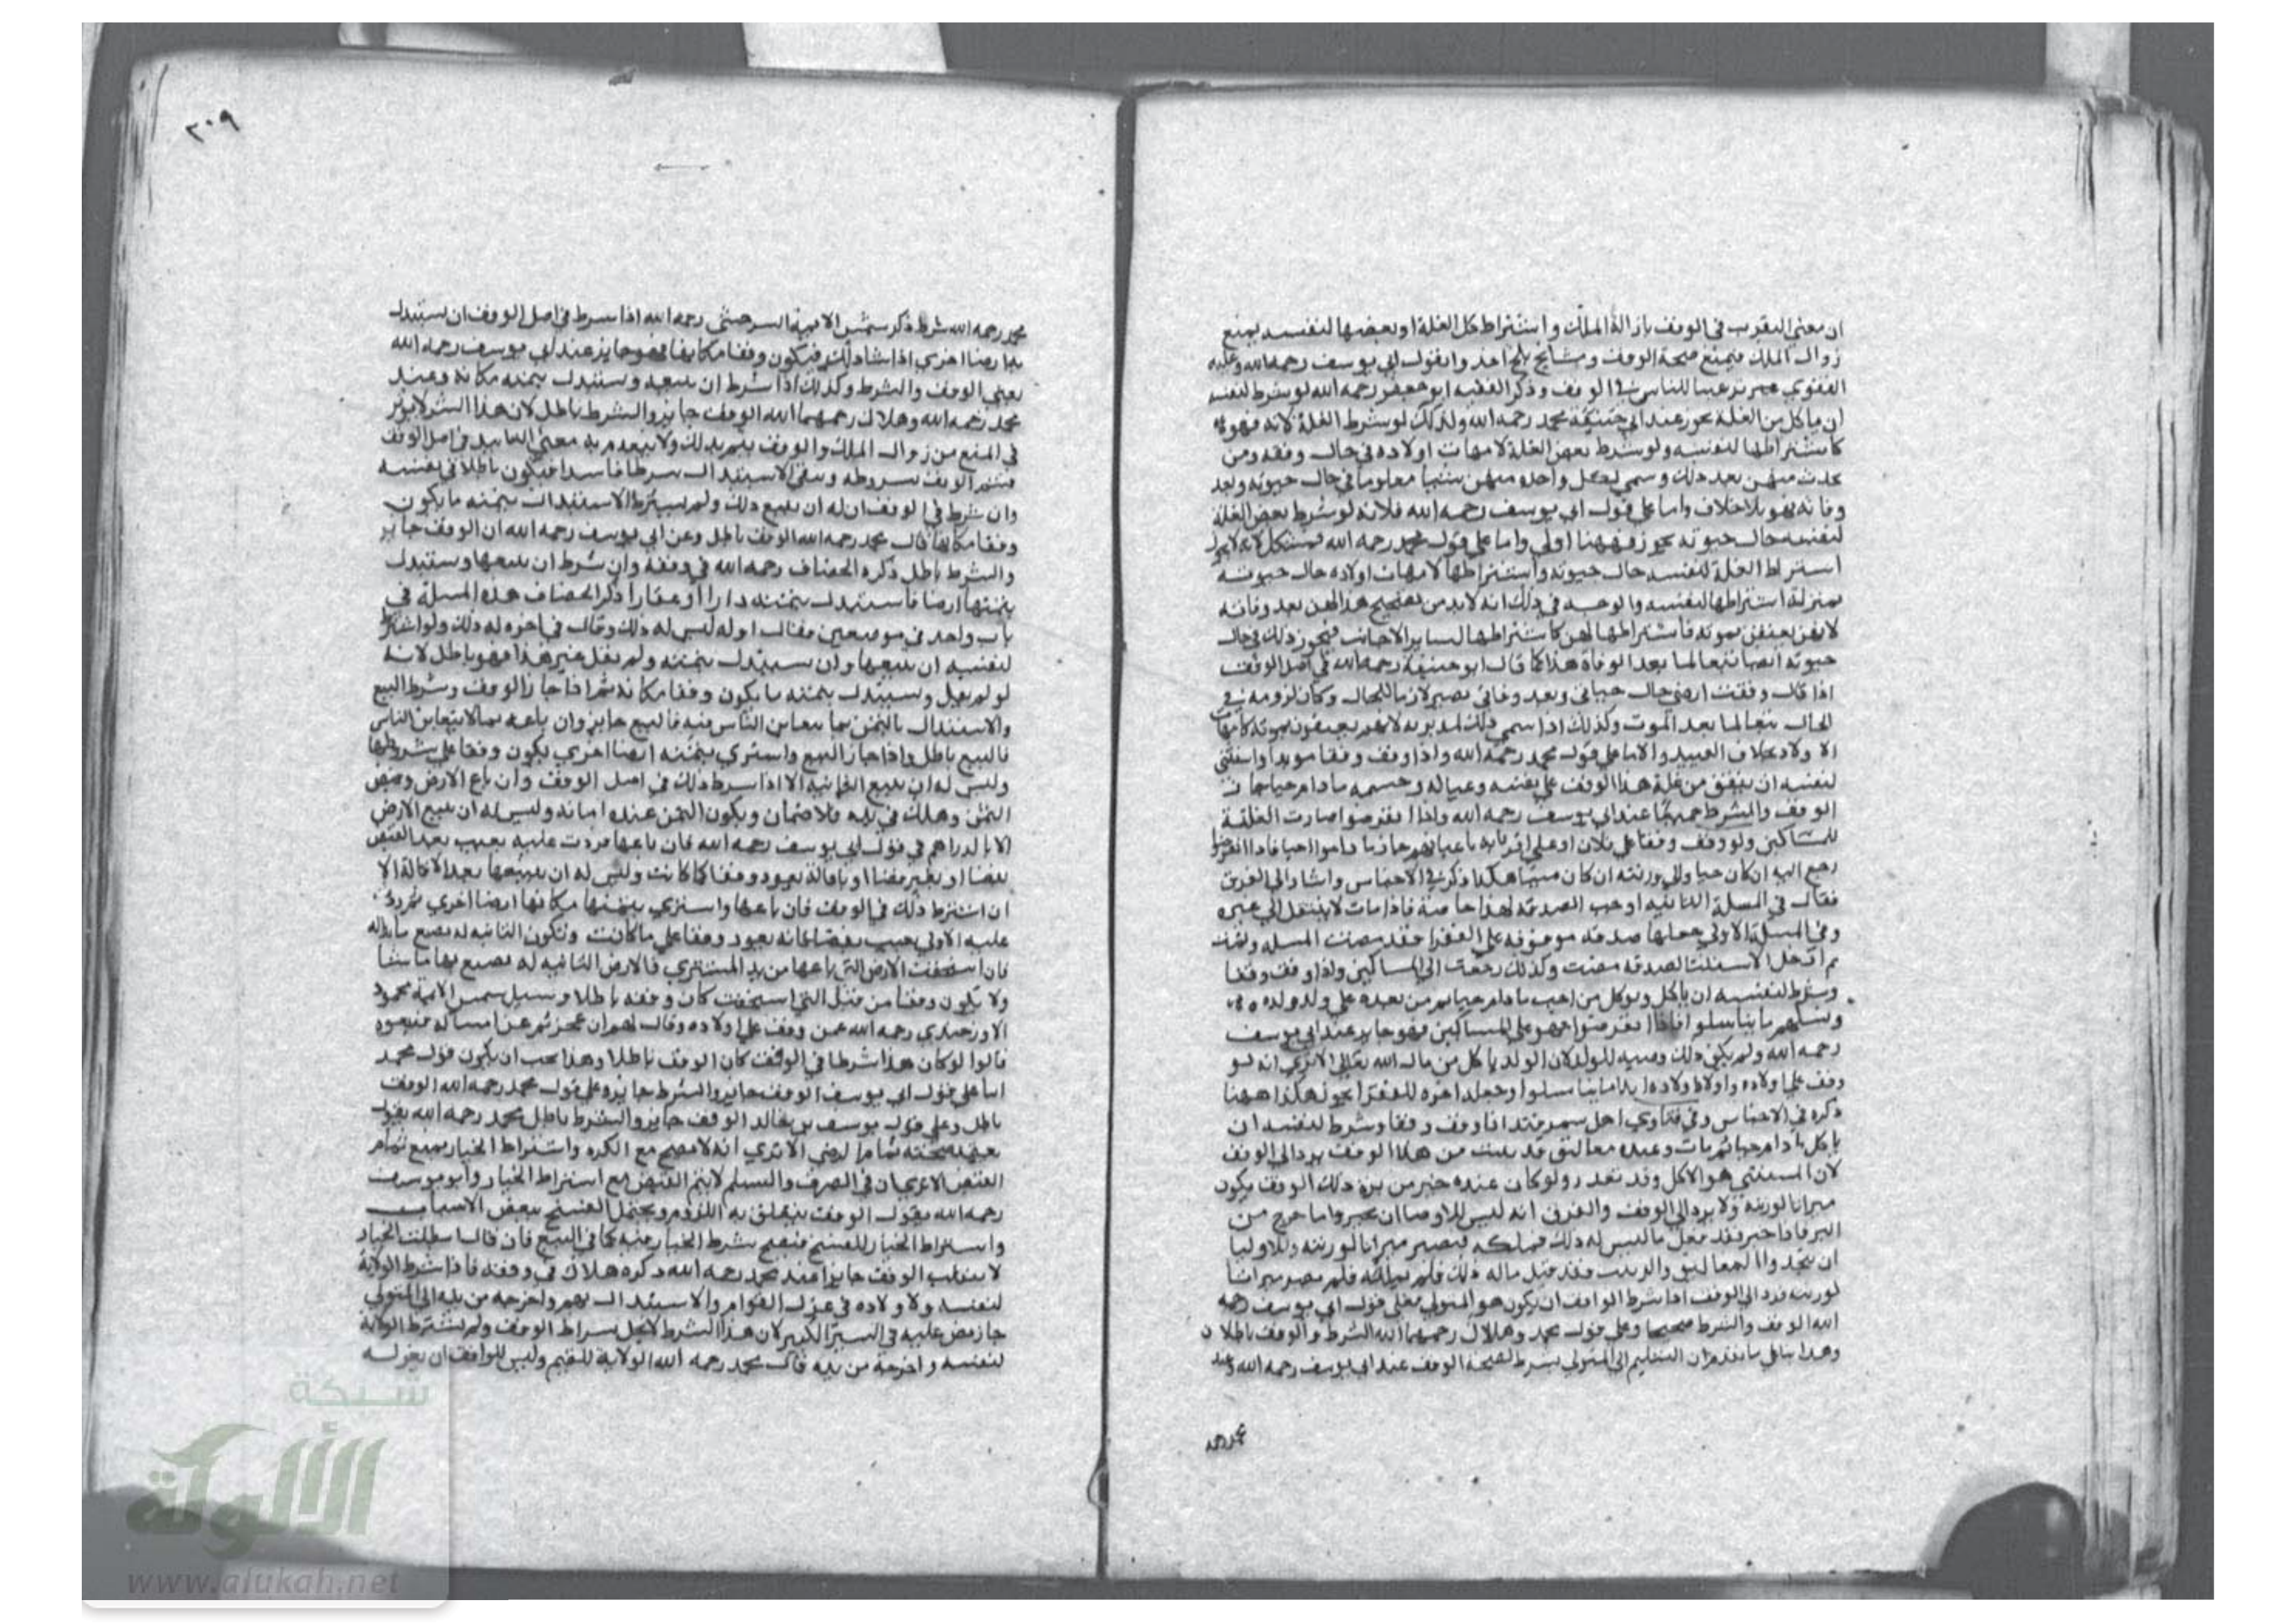 ان معنى التقرب في الوقف بازالة الملك واشتراط كل الغلة او بعضها لنفسه يمنع
زوال الملك فيمنع صحة الوقف ومشايخ بلخ اخذوا بقول ابي يوسف رحمه الله وعليه
الفتوى ترغيبا للناس في الوقف وذكر الفقيه ابو جعفر رحمه الله لو شرط لنفسه
ان ياكل من الغلة يجوز عند محمد رحمه الله وكذلك لو شرط الغلة لانه فهو
كاشتراطها لنفسه ولو شرط بعض الغلة لامهات اولاده في حال وقفه ومن
يحدث منهن بعد ذلك وسمى لكل واحده منهن شيا معلوما في حال حيوته وبعد
وفاته فهو بلا خلاف واما على قول ابي يوسف رحمه الله فلانه لو شرط بعض الغلة
لنفسه حال حيوته يجوز فههنا اولى واما على قول محمد رحمه الله فمشكل لانه لا يجوز
اشتراط الغلة لنفسه حال حيوته واشتراطها لامهات اولاده حال حيوته
بمنزلة اشتراطها لنفسه والوجه في ذلك انه لابد من تصحيح هذا لهن بعد وفاته
لانهن يعتقن بموته فاشتراطها لهن كاشتراطها لساير الاجانب فيجوز ذلك في حال
حيوته ايضا تبعا لما بعد الوفاة هذا كما قال ابو حنيفة رحمه الله في اصل الوقف
اذا قال وقفت ارضي حال حياتي وبعد وفاتي يصير لازما للحال وكان لزومه في
الحال تبعا لما بعد الموت وكذلك اذا سمى ذلك لمدبريه لانهم يعتقون بموته كامهات
الاولاد بخلاف العبيد والاما على قول محمد رحمه الله واذا وقف وقفا موبدا واستثنى
لنفسه ان ينفق من غلة هذا الوقف على نفسه وعياله وحشمه مادام حيا جاز
الوقف والشرط جميعا عند ابي يوسف رحمه الله واذا انقرضوا صارت الغلة
للمساكين ولو وقف وقفا على فلان او على اقربايه باعيانهم جاز ما داموا احيا فاذا انقرضوا
رجع اليه ان كان حيا والى ورثته ان كان ميتا هكذا ذكر في الاجناس واشار الى الفرق
فقال في المسلة الثانيه اوجب الصدقة لهذا خاصة فاذا مات لا ينتقل الى غيره
وفي المسلة الاولى جعلها صدقة موقوفه على الفقرا فقد مضت المسلة
واذا وقف وقفا
وشرط لنفسه ان ياكل ويوكل من احب مادام حيا ثم من بعده على ولده وولد ولده
ونسلهم ما تناسلوا فاذا انقرضوا فهو على المساكين فهو جايز عند ابي يوسف
رحمه الله ولم يكن ذلك وصيه للولد لان الولد ياكل من مال الله تعالى الا ترى انه لو
وقف على اولاده واولاد اولاده ابدا ما تناسلوا وجعل اخره للفقرا يجوز هكذا ههنا
ذكره في الاجناس وفي فتاوى اهل سمرقند اذا وقف وقفا وشرط لنفسه ان
ياكل مادام حيا ثم مات وعنده معاليق من هذا الوقف يرد الى الوقف
لان المستثنى هو الاكل وقد تعذر ولو كان عنده خبز من بر ذلك الوقف يكون
ميراثا لورثته ولا يرد الى الوقف والفرق انه ليس للاوصيا ان يخبزوا ما خرج من
البر فاذا خبز فقد فعل ما ليس له ذلك فملكه فيصير ميراثا لورثته وللاوليا
ان يتخذوا المعاليق والزبيب فقد فعل ماله ذلك فلم يملكه فلم يصر ميراثا
لورثته فرد الى الوقف اذا شرط الواقف ان يكون هو المتولي فعلى قول ابي يوسف رحمه
الله الوقف والشرط صحيحا وعلى قول محمد وهلال رحمهما الله الشرط والوقف باطلان
وهذا بنا على ما تقدم ان التسليم الى المتولي شرط لصحة الوقف عند ابي يوسف رحمه الله وعند
محمد رحمه
٢٠٩
محمد رحمه الله شرط ذكر شمس الايمة السرخسي رحمه الله اذا شرط في اصل الوقف ان يستبدل
بها ارضا اخرى اذا شا ذلك فيكون وقفا مكانها فهو جايز عند ابي يوسف رحمه الله
يعني الوقف والشرط وكذلك اذا شرط ان يبيعه ويستبدل بثمنه مكانه وعند
محمد رحمه الله وهلال رحمهما الله الوقف جايز والشرط باطل لان هذا الشرط لا يوثر
في المنع من زوال الملك والوقف يتم بذلك ولا ينعدم به معنى التابيد في اصل الوقف
فيتم الوقف بشروطه ويبقى الاستبدال شرطا فاسدا فيكون باطلا في نفسه
وان شرط في الوقف ان له ان يبيع ذلك ولم يشترط الاستبدال بثمنه ما يكون
وقفا مكانها قال محمد رحمه الله الوقف باطل وعن ابي يوسف رحمه الله ان الوقف جايز
والشرط باطل ذكره الخصاف رحمه الله في وقفه وان شرط ان يبيعها ويستبدل
بثمنها ارضا فاستبدل بثمنه دارا او عقارا ذكر الخصاف هذه المسلة في
باب واحد في موضعين فقال اوله ليس له ذلك وقال في اخره له ذلك ولو اشترط
لنفسه ان يبيعها وان يستبدل بثمنه ولم يقل غير هذا فهو باطل لانه
لو لم يقل ويستبدل بثمنه ما يكون وقفا مكانه ثم اذا جاز الوقف وشرط البيع
والاستبدال بالثمن بما يتغابن الناس فيه فالبيع جايز وان باعه بما لا يتغابن الناس
فالبيع باطل واذا جاز البيع واشترى بثمنه ارضا اخرى يكون وقفا على شروطها
وليس له ان يبيع الثانية الا اذا شرط ذلك في اصل الوقف وان باع الارض وقبض
الثمن وهلك في يده فلا ضمان ويكون الثمن عنده امانه وليس له ان يبيع الارض
الا بالدراهم في قول ابي يوسف رحمه الله فان باعها فردت عليه بعيب بعد القبض
بقضا او بغير قضا او باقالة يعود وقفا كما كانت وليس له ان يبيعها بعد الاقالة الا
ان اشترط ذلك في الوقف فان باعها واشترى بثمنها مكانها ارضا اخرى ثم ردت
عليه الاولى بعيب بقضا فانه يعود وقفا على ما كانت وتكون الثانيه له يصنع ما بدا له
فان استحقت الارض التي باعها من يد المشتري فالارض الثانيه له يصنع بها ما شا
ولا تكون وقفا من قبل التي استحقت كان وقفه باطلا وسيل شمس الايمة محمود
الاوزجندي رحمه الله عمن وقف على اولاده وقال لهم ان عجزتم عن امساكه فبيعوه
قالوا لو كان هذا شرطا في الوقف كان الوقف باطلا وهذا يجب ان يكون قول محمد
اما على قول ابي يوسف الوقف جايز والشرط جايز وعلى قول محمد رحمه الله الوقف
باطل وعلى قول يوسف بن خالد الوقف جايز والشرط باطل محمد رحمه الله يقول
تمام الرضى الا ترى انه لا يصح مع الكره واشتراط الخيار يمنع تمام
القبض الا ترى ان في الصرف والسلم لا يتم القبض مع اشتراط الخيار وابو يوسف
رحمه الله يقول الوقف يتعلق به اللزوم ويحتمل الفسخ ببعض الاسباب
واشتراط الخيار للفسخ فيصح بشرط الخيار فيه كما في البيع فان قال ابطلت الخيار
لا ينقلب الوقف جايزا عند محمد رحمه الله ذكره هلال في وقفه فاذا شرط الولاية
لنفسه ولاولاده في عزل القوام والاستبدال بهم واخرجه من يده الى المتولي
جاز نص عليه في السير الكبير لان هذا الشرط لا يخل بشرايط الوقف ولو لم يشترط الولاية
لنفسه واخرجه من يده قال محمد رحمه الله الولاية للقيم وليس للواقف ان يعزله
شبكة
الألوكة
www.alukah.net